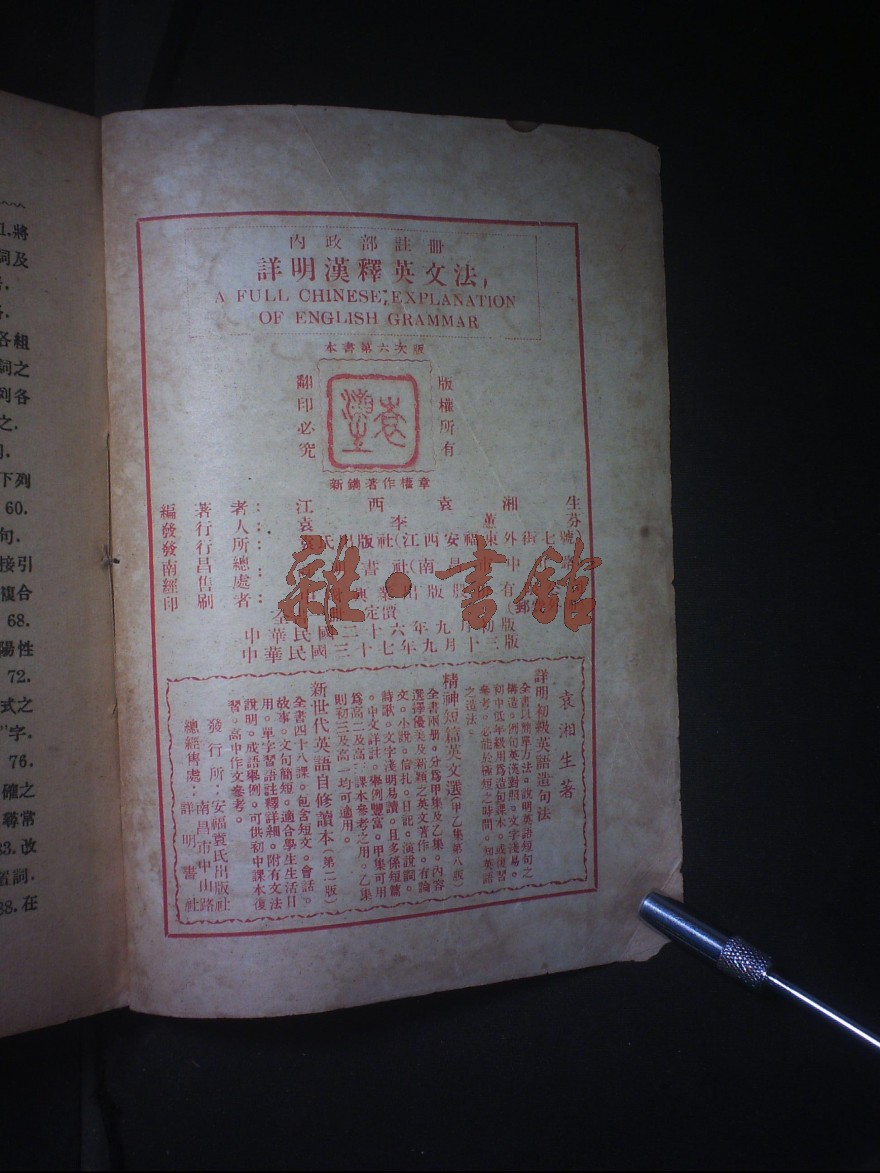 內政部註冊
詳明漢釋英文法
A FULL CHINESE EXPLANATION
OF ENGLISH GRAMMAR
本書第六次版
版權所有
翻印必究
新鐫著作權章
編著者：江西袁湘生
發行人：袁李蕙芬
發行所：袁氏出版社(江西安福東外街七號)
南昌總處：書社(南昌市中路
經售處：
印刷者：
定價
中華民國二十六年九月初版
中華民國三十七年九月十三版
袁湘生著
詳明初級英語造句法
全書以簡單方法。說明英語短句之
構造。例句英漢對照。文字淺易。
初中低年級用爲造句課本。或復習
參考。必能於極短之時間。知英語
之造法。
精神短信英文選(甲乙集第八版)
全書兩册。分爲甲集及乙集。內容
選擇優美及新穎之英文著作。有論
文。小說。信扎。日記。演說詞。
詩歌。文字淺明易讀。且多係短篇
。中文詳註。舉例豐富。甲集可用
爲高二及高三課本參考之用。乙集
則初三及高一均可適用。
新世代英語自修讀本(第二版)
全書四十八課。包含短文。會話。
故事。文句簡短。適合學生生活日
用。單字習語註釋詳細。附有文法
說明。成語舉例。可供初中課本復
習。高中作文參考。
發行所：安福袁氏出版社
南昌市中山路
總經售處：詳明書社
雜·書館
1.將
詞及
各組
詞之
列各
之.
下列
60.
句.
接引
複合
68.
陽性
72.
式之
"字.
76.
確之
尋常
83.改
置詞.
88.在